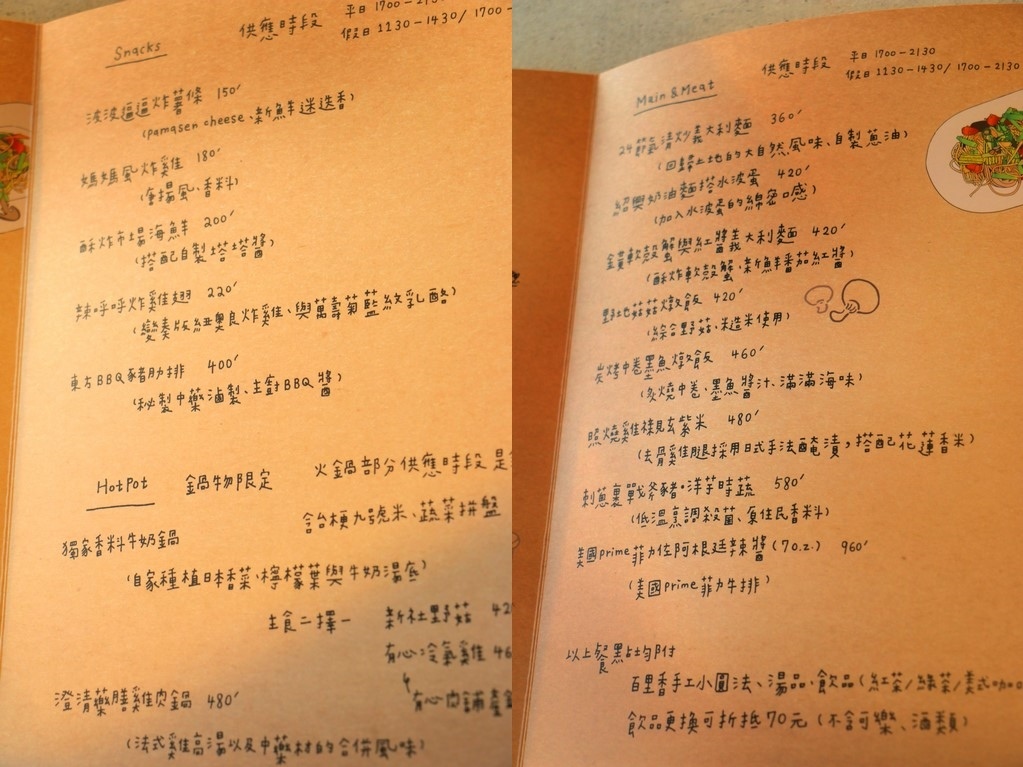 Snacks
供應時段 平日 1700-2130
假日 1130-1430/ 1700-
波波逼逼炸薯條 150'
(pamasen cheese、新鮮迷迭香)
媽媽風炸雞 180'
(唐揚風、香料)
酥炸市場海鮮 200'
(搭配自製塔塔醬)
辣呼呼炸雞翅 220'
(變奏版紐奧良炸雞、與萬壽菊藍紋乳酪)
東方BBQ豬肋排 400'
(秘製中藥滷製、主廚BBQ醬)
HotPot 鍋物限定 火鍋部分供應時段是
含台梗九號米、蔬菜拼盤
獨家香料牛奶鍋
(自家種植日本香菜、檸檬葉與牛奶湯底)
主食二擇一 新社野菇 42
有心冷氣雞 46
有心肉舖產
澄清藥膳雞肉鍋 480'
(法式雞高湯以及中藥材的合併風味)
Main & Meat
供應時段 平日 1700-2130
假日 1130-1430/ 1700-2130
24節氣清炒義大利麵 360'
(回歸土地的大自然風味、自製蔥油)
紹興奶油麵搭水波蛋 420'
(加入水波蛋的綿密口感)
金黃軟殼蟹與紅醬義大利麵 420'
(酥炸軟殼蟹、新鮮番茄紅醬)
野地菇菇燉飯 420'
(綜合野菇、糙米使用)
炭烤中卷墨魚燉飯 460'
(炙燒中卷、墨魚醬汁、滿滿海味)
照燒雞佐椪見玄紫米 480'
(去骨雞腿採用日式手法醃漬,搭配花蓮香米)
刺蔥裹戰斧豬·洋芋時蔬 580'
(低溫烹調殺菌、原住民香料)
美國prime菲力佐阿根廷辣醬(7o.z.) 960'
(美國prime菲力牛排)
以上餐點均附
百里香手工小圓法、湯品、飲品(紅茶/綠茶/美式咖
飲品更換可折抵70元(不含可樂、酒類)